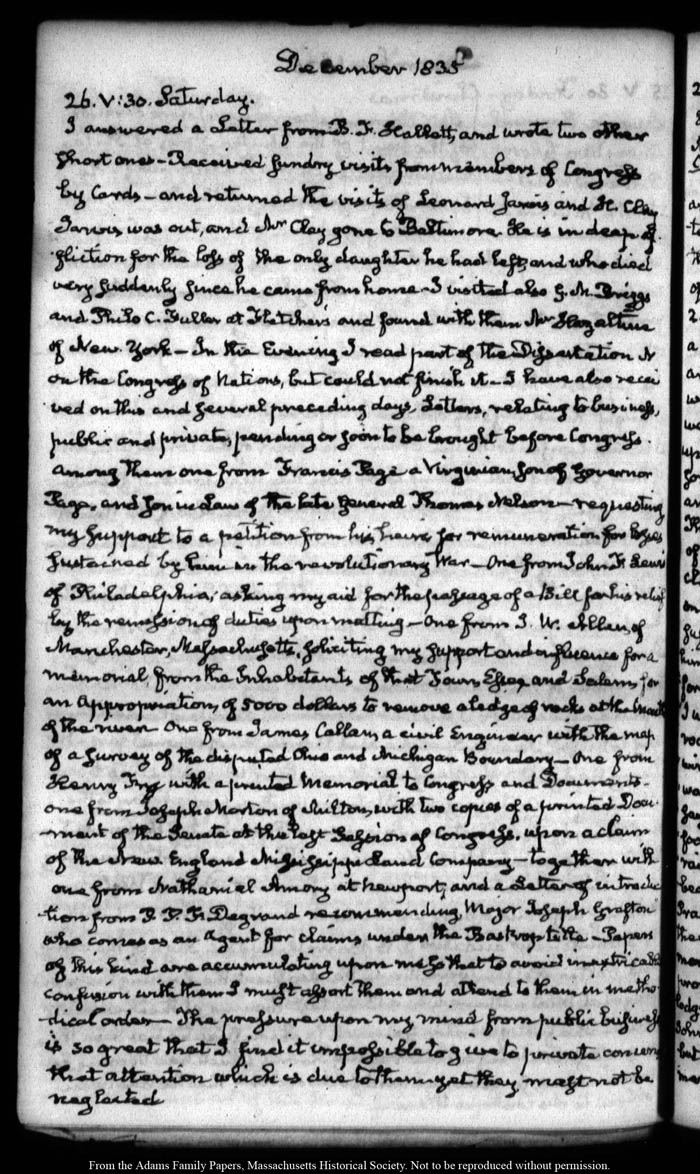 December 1835
26. V:30. Saturday.
I answered a Letter from B. F. Hallett, and wrote two other
short ones – Received sundry visits from members of Congress
by Cards – and returned the visits of Leonard Jarvis and H. Clay
Jarvis was out, and Mr Clay gone to Baltimore. He is in deep af-
fliction for the loss of the only daughter he had left, and who died
very suddenly since he came from home – I visited also G. N. Briggs
and Philo C. Fuller at Fletcher's and found with them Mr Hazeltine
of New-York – In the Evening I read part of the Dissertation N
on the Congress of Nations, but could not finish it – I have also recei
ved on this and several preceding days, Letters, relating to business,
public and private, pending or soon to be brought before Congress.
Among them one from Francis Page a Virginian, son of Governor
Page, and son in Law of the late General Thomas Nelson – requesting
my support to a petition from his heirs for remuneration for losses
sustained by him in the revolutionary War – One from John F. Lewis
of Philadelphia, asking my aid for the passage of a Bill for his relief
by the remission of duties upon matting – One from J. W. Allen, of
Manchester, Massachusetts, soliciting my support and influence for a
memorial, from the Inhabitants of that Town, Essex, and Salem, for
an Appropriation, of 5000 dollars to remove a ledge of rocks at the mouth
of the river – One from James Callam, a civil Engineer with the map
of a survey of the disputed Ohio and Michigan Boundary – One from
Henry with a printed Memorial to Congress and Documents –
one from Joseph Morton of Milton, with two copies of a printed Docu-
ment of the Senate at the last Session of Congress, upon a claim
of the New England Mississippi Land Company – together with
one from Nathaniel Amory at Newport, and a Letter of introduc
tion from P. P. F. Degrand recommending, Major Joseph Grafton
who comes as an Agent for claims under the Bastrop title – Papers
of this kind are accumulating upon me so that to avoid inextricable
confusion with them I must assort them and attend to them in metho-
dical order – The pressure upon my mind from public business
is so great that I find it impossible to give to private concerns
that attention which is due to them – yet they must not be
neglected
From the Adams Family Papers, Massachusetts Historical Society. Not to be reproduced without permission.